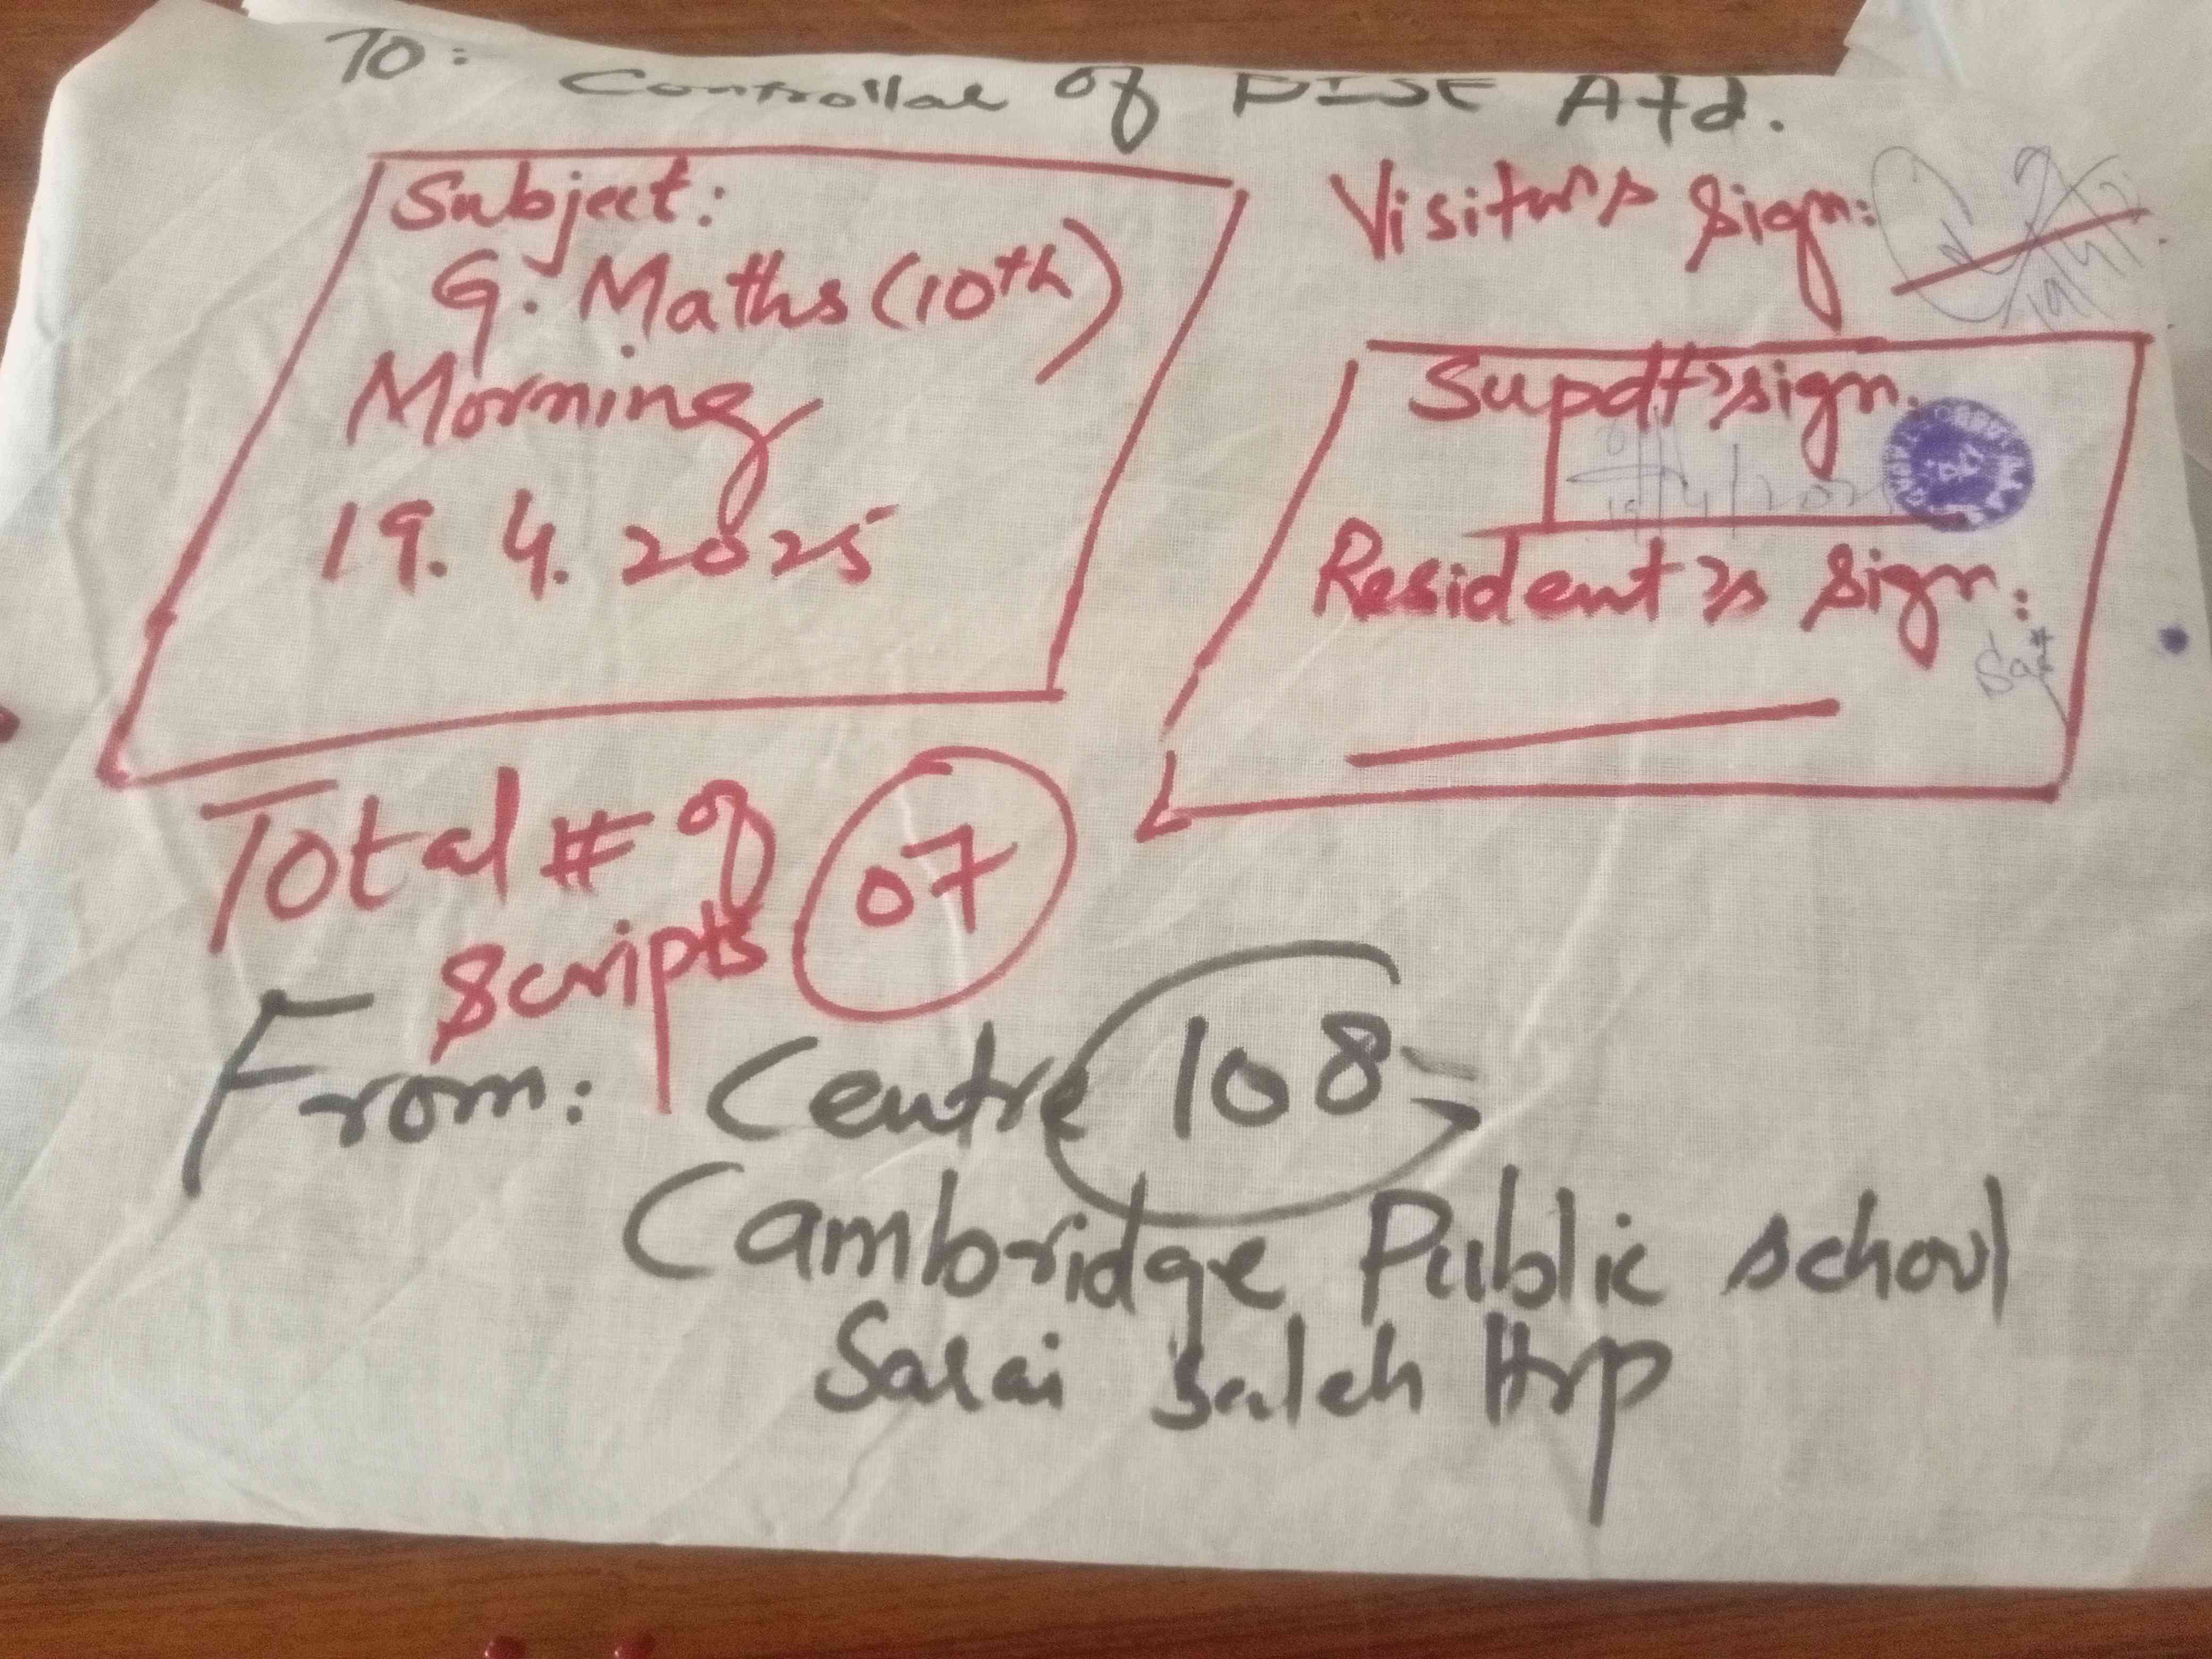 To: Controllar of BISE Atd.
Subject:
G. Maths (10th)
Morning
19. 4. 2025
Visitor's Sign:
19/4/
Supdt's sign.
19/4/202
Resident's Sign:
Total # of
Scripts 07
From: Centre 108
Cambridge Public school
Sarai Saleh Hrp